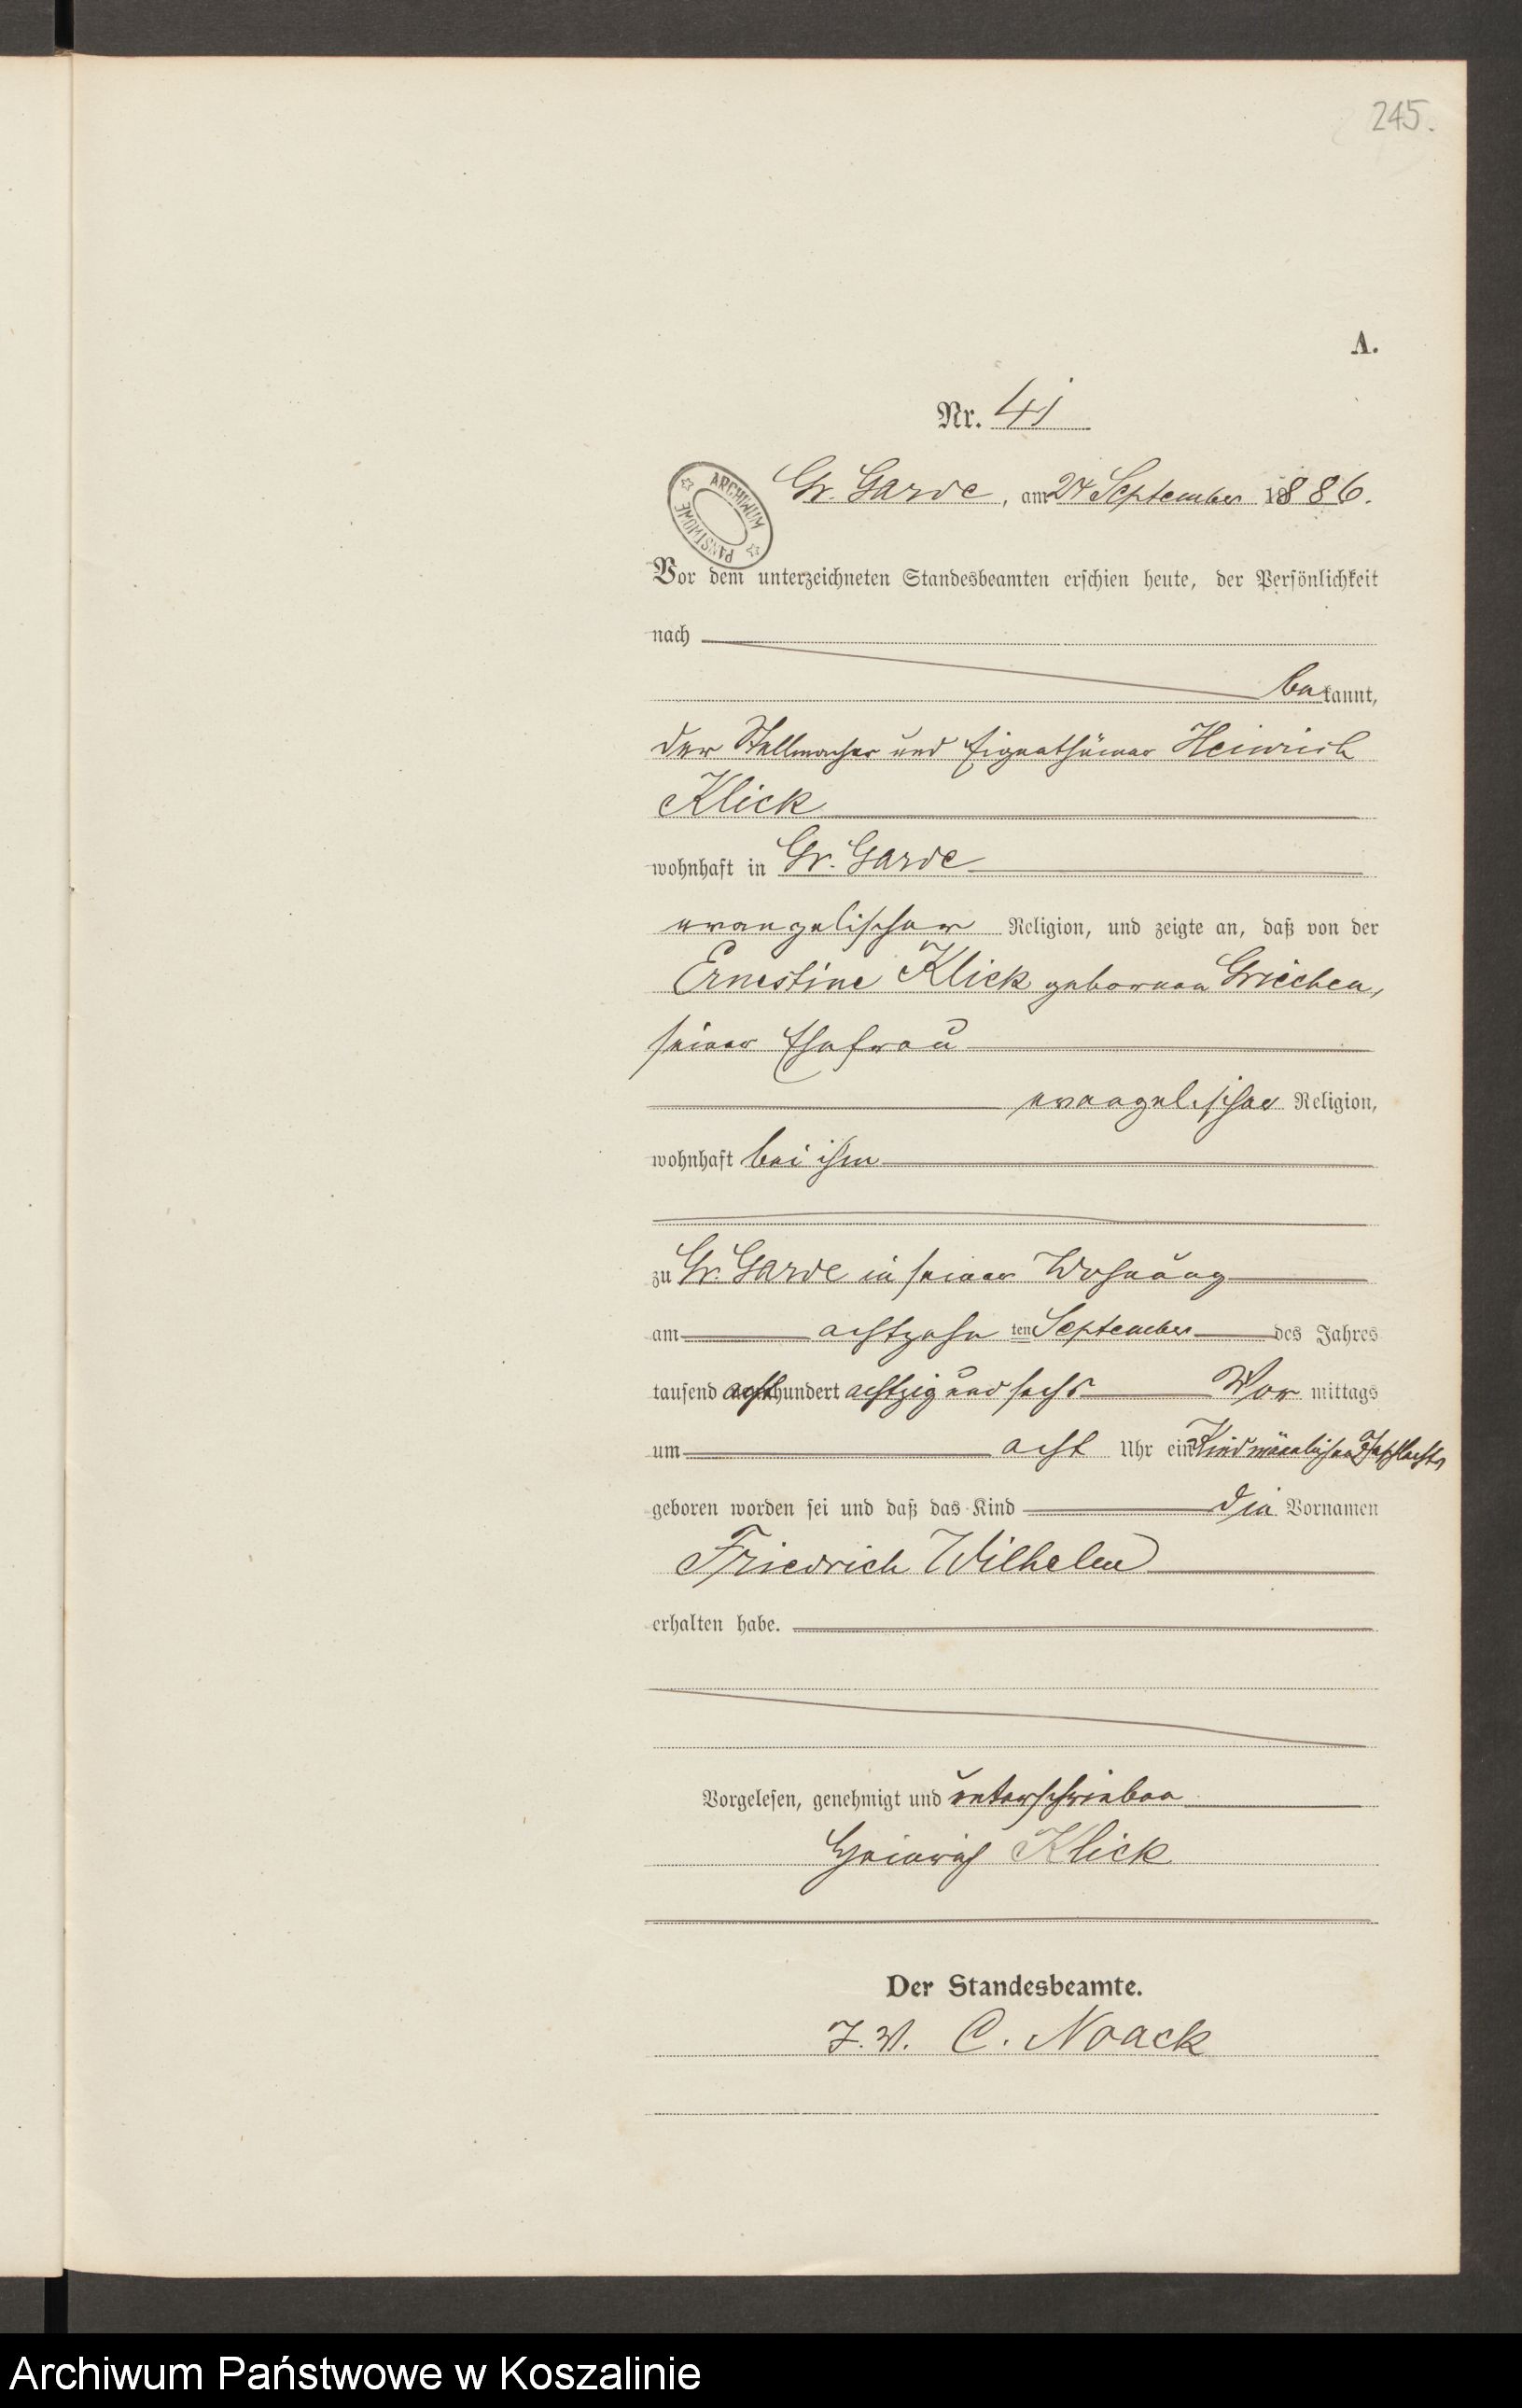 245.
A.
Nr. 41
ARCHIWUM PAŃSTWOWE
Gr. Garde, am 24 September 1886.
Vor dem unterzeichneten Standesbeamten erschien heute, der Persönlichkeit
nach
bekannt,
der Stellmacher und Eigenthümer Heinrich
Klick
wohnhaft in Gr. Garde
evangelischer Religion, und zeigte an, daß von der
Ernestine Klick geborenen Griechen,
seiner Ehefrau
evangelischer Religion,
wohnhaft bei ihm
zu Gr. Garde in seiner Wohnung
am achtzehn ten September des Jahres
tausend achthundert achtzig und sechs Vor mittags
um acht Uhr ein Kind männlichen Geschlechts
geboren worden sei und daß das Kind die Vornamen
Friedrich Wilhelm
erhalten habe.
Vorgelesen, genehmigt und unterschrieben
Heinrich Klick
Der Standesbeamte.
J. V. C. Noack
Archiwum Państwowe w Koszalinie